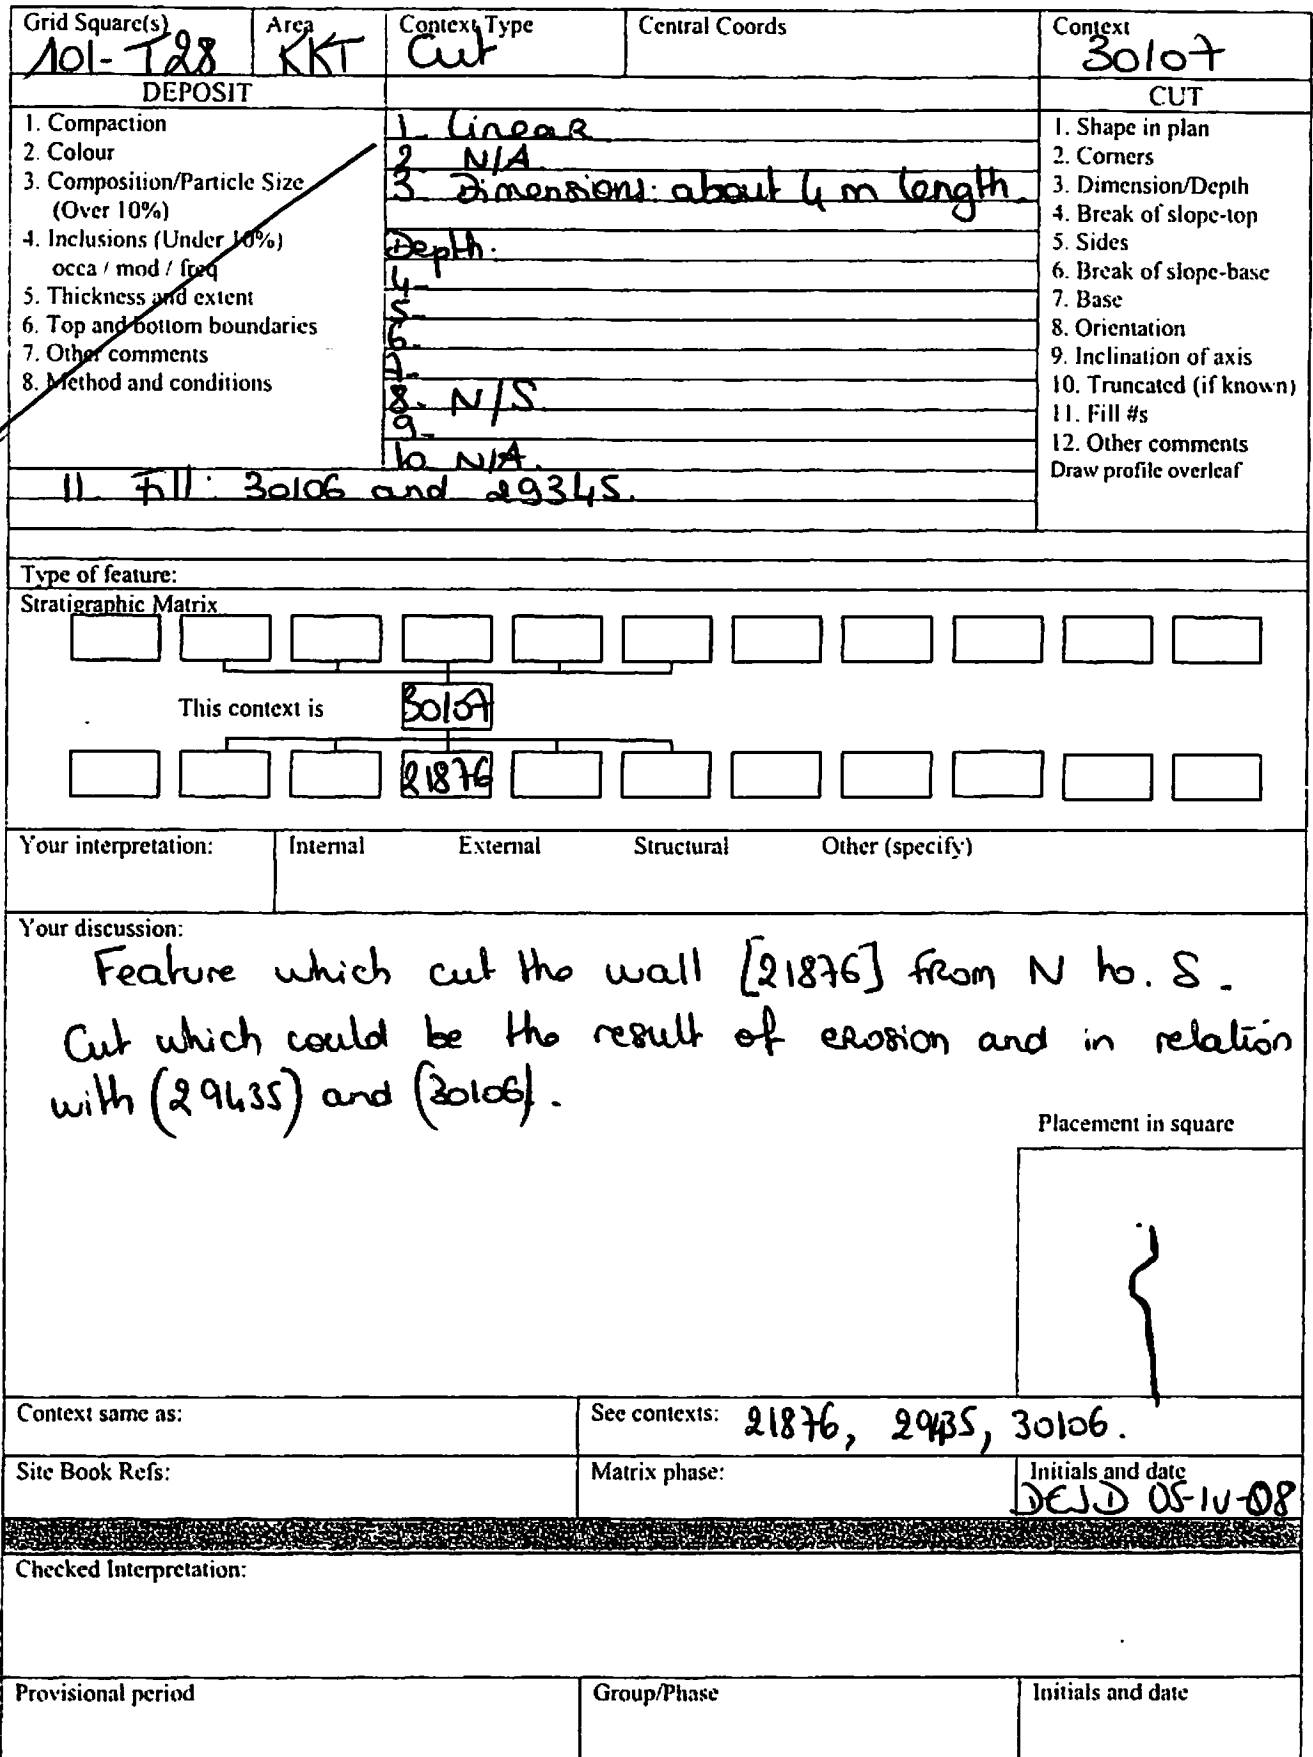 Grid Square(s) Area Context Type Central Coords Context
101-T28 KKT Cut 30107
DEPOSIT CUT
1. Compaction
2. Colour
3. Composition/Particle Size
(Over 10%)
4. Inclusions (Under 10%)
occa / mod / freq
5. Thickness and extent
6. Top and bottom boundaries
7. Other comments
8. Method and conditions
1. Linear
2 N/A
3. Dimensions: about 4 m length.
Depth:
4-
5-
6.
7.
8. N/S
9-
10 N/A.
11. Fill: 30106 and 29345.
1. Shape in plan
2. Corners
3. Dimension/Depth
4. Break of slope-top
5. Sides
6. Break of slope-base
7. Base
8. Orientation
9. Inclination of axis
10. Truncated (if known)
11. Fill #s
12. Other comments
Draw profile overleaf
Type of feature:
Stratigraphic Matrix
This context is 30107
21876
Your interpretation: Internal External Structural Other (specify)
Your discussion:
Feature which cut the wall [21876] from N to. S.
Cut which could be the result of erosion and in relation
with (29435) and (30106).
Placement in square
Context same as: See contexts: 21876, 29435, 30106.
Site Book Refs: Matrix phase: Initials and date
DEJD 05-IV-08
Checked Interpretation:
Provisional period Group/Phase Initials and date